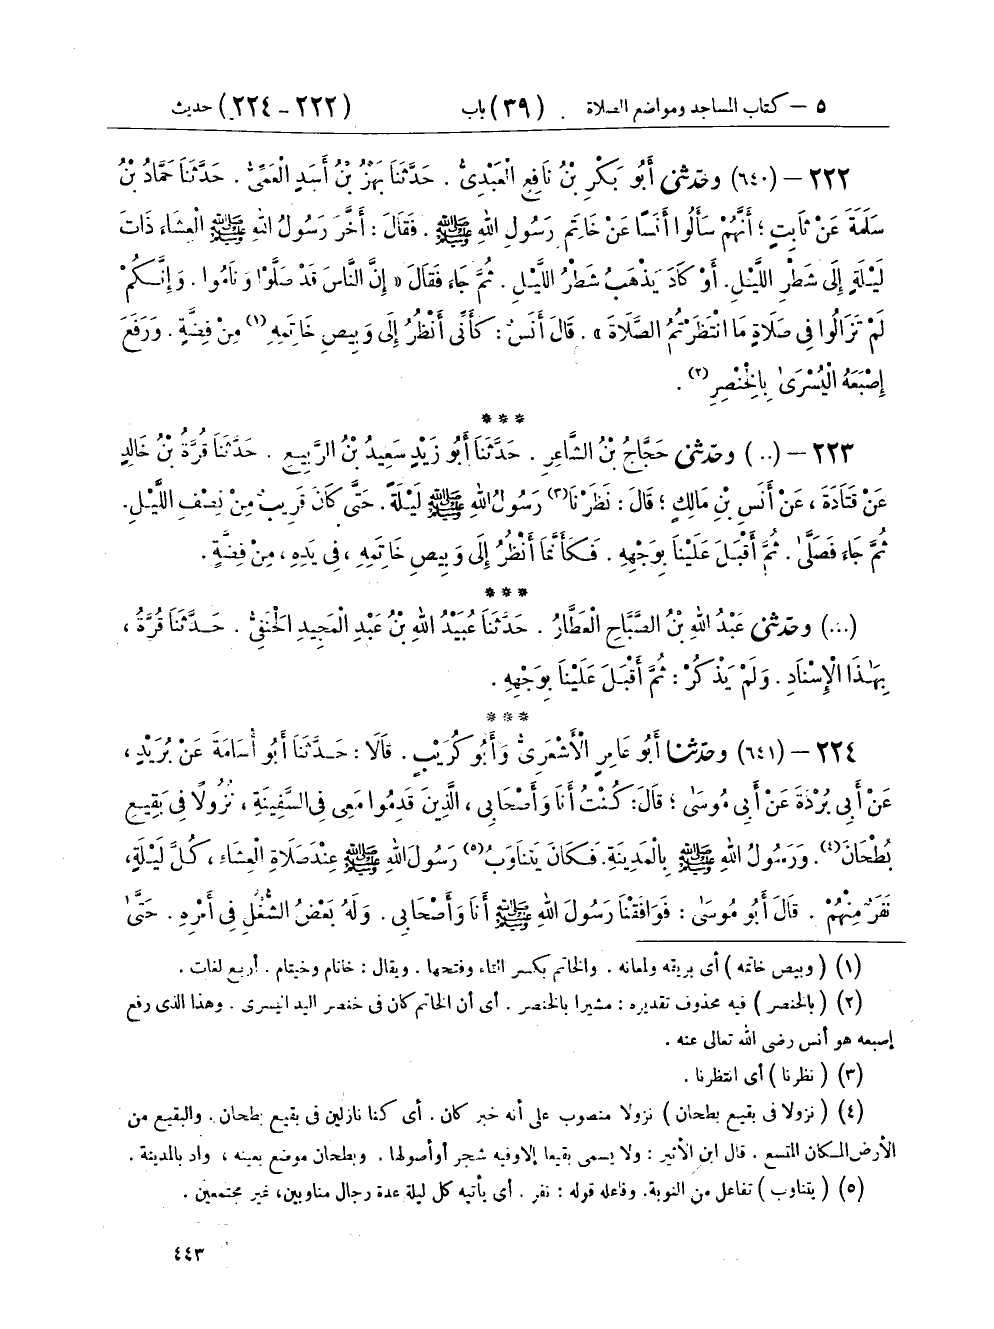 ٥ – كتاب المساجد ومواضع الصلاة . (٣٩) باب (٢٢٢ – ٢٢٤) حديث
٢٢٢ – (٦٤٠) وحَدَّثَنِي أَبُو بَكْرِ بْنُ نَافِعٍ الْعَبْدِيُّ . حَدَّثَنَا بَهْزُ بْنُ أَسَدٍ الْعَمِّيُّ . حَدَّثَنَا حَمَّادُ بْنُ
سَلَمَةَ عَنْ ثَابِتٍ ؛ أَنَّهُمْ سَأَلُوا أَنَسًا عَنْ خَاتَمِ رَسُولِ اللهِ ﷺ . فَقَالَ : أَخَّرَ رَسُولُ اللهِ ﷺ الْعِشَاءَ ذَاتَ
لَيْلَةٍ إِلَى شَطْرِ اللَّيْلِ . أَوْ كَادَ يَذْهَبُ شَطْرُ اللَّيْلِ . ثُمَّ جَاءَ فَقَالَ « إِنَّ النَّاسَ قَدْ صَلَّوْا وَنَامُوا . وَإِنَّكُمْ
لَمْ تَزَالُوا فِي صَلَاةٍ مَا انْتَظَرْتُمُ الصَّلَاةَ » . قَالَ أَنَسٌ : كَأَنِّي أَنْظُرُ إِلَى وَبِيصِ خَاتَمِهِ (١) مِنْ فِضَّةٍ . وَرَفَعَ
إِصْبَعَهُ الْيُسْرَىٰ بِالْخِنْصِرِ (٢) .
***
٢٢٣ – (..) وحَدَّثَنِي حَجَّاجُ بْنُ الشَّاعِرِ . حَدَّثَنَا أَبُو زَيْدٍ سَعِيدُ بْنُ الرَّبِيعِ . حَدَّثَنَا قُرَّةُ بْنُ خَالِدٍ
عَنْ قَتَادَةَ ، عَنْ أَنَسِ بْنِ مَالِكٍ ؛ قَالَ : نَظَرْنَا (٣) رَسُولَ اللهِ ﷺ لَيْلَةً . حَتَّى كَانَ قَرِيبٌ مِنْ نِصْفِ اللَّيْلِ .
ثُمَّ جَاءَ فَصَلَّىٰ . ثُمَّ أَقْبَلَ عَلَيْنَا بِوَجْهِهِ . فَكَأَنَّمَا أَنْظُرُ إِلَى وَبِيصِ خَاتَمِهِ ، فِي يَدِهِ ، مِنْ فِضَّةٍ .
***
(...) وحَدَّثَنِي عَبْدُ اللهِ بْنُ الصَّبَّاحِ الْعَطَّارُ . حَدَّثَنَا عُبَيْدُ اللهِ بْنُ عَبْدِ الْمَجِيدِ الْحَنَفِيُّ . حَدَّثَنَا قُرَّةُ ،
بِهَـٰذَا الْإِسْنَادِ . وَلَمْ يَذْكُرْ : ثُمَّ أَقْبَلَ عَلَيْنَا بِوَجْهِهِ .
***
٢٢٤ – (٦٤١) وحَدَّثَنَا أَبُو عَامِرٍ الْأَشْعَرِيُّ وَأَبُو كُرَيْبٍ . قَالَا : حَدَّثَنَا أَبُو أُسَامَةَ عَنْ بُرَيْدٍ ،
عَنْ أَبِي بُرْدَةَ عَنْ أَبِي مُوسَىٰ ؛ قَالَ : كُنْتُ أَنَا وَأَصْحَابِي ، الَّذِينَ قَدِمُوا مَعِي فِي السَّفِينَةِ ، نُزُولًا فِي بَقِيعِ
بُطْحَانَ (٤) . وَرَسُولُ اللهِ ﷺ بِالْمَدِينَةِ . فَكَانَ يَتَنَاوَبُ (٥) رَسُولَ اللهِ ﷺ عِنْدَ صَلَاةِ الْعِشَاءِ ، كُلَّ لَيْلَةٍ ،
نَفَرٌ مِنْهُمْ . قَالَ أَبُو مُوسَىٰ : فَوَافَقْنَا رَسُولَ اللهِ ﷺ أَنَا وَأَصْحَابِي . وَلَهُ بَعْضُ الشُّغُلِ فِي أَمْرِهِ . حَتَّىٰ
(١) ( وبيص خاتمه ) أى بريقه ولمعانه . والخاتم بكسر التاء وفتحها . ويقال : خاتام وخيتام . أربع لغات .
(٢) ( بالخنصر ) فيه محذوف تقديره : مشيرا بالخنصر . أى أن الخاتم كان فى خنصر اليد اليسرى . وهذا الذى رفع
إصبعه هو أنس رضى الله تعالى عنه .
(٣) ( نظرنا ) أى انتظرنا .
(٤) ( نزولا فى بقيع بطحان ) نزولا منصوب على أنه خبر كان . أى كنا نازلين فى بقيع بطحان . والبقيع من
الأرض المكان المتسع . قال ابن الأثير : ولا يسمى بقيعا إلا وفيه شجر أو أصولها . وبطحان موضع بعينه ، واد بالمدينة .
(٥) ( يتناوب ) تفاعل من النوبة . وفاعله قوله : نفر . أى يأتيه كل ليلة عدة رجال مناوبين ، غير مجتمعين .
٤٤٣